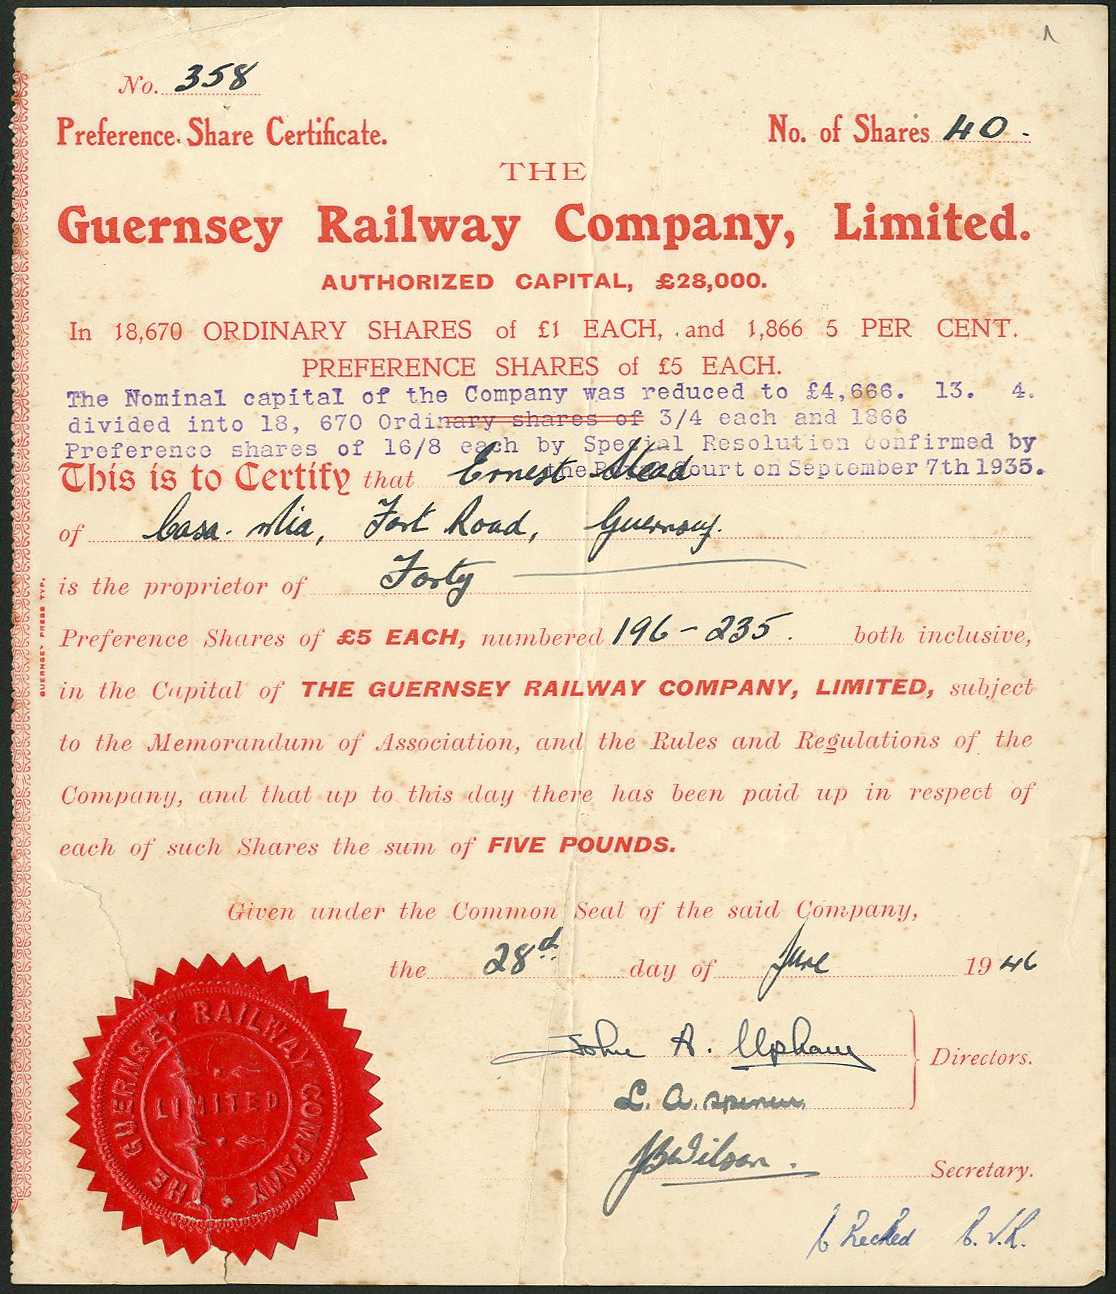 No. 358
Preference Share Certificate.
No. of Shares 40.
THE
Guernsey Railway Company, Limited.
AUTHORIZED CAPITAL, £28,000.
In 18,670 ORDINARY SHARES of £1 EACH, and 1,866 5 PER CENT.
PREFERENCE SHARES of £5 EACH.
The Nominal capital of the Company was reduced to £4,666. 13. 4.
divided into 18, 670 Ordinary shares of 3/4 each and 1866
Preference shares of 16/8 each by Special Resolution confirmed by
the Royal Court on September 7th 1935.
This is to Certify that Ernest Stead
of Casa Mia, Fort Road, Guernsey.
is the proprietor of Forty
Preference Shares of £5 EACH, numbered 196-235. both inclusive,
in the Capital of THE GUERNSEY RAILWAY COMPANY, LIMITED, subject
to the Memorandum of Association, and the Rules and Regulations of the
Company, and that up to this day there has been paid up in respect of
each of such Shares the sum of FIVE POUNDS.
Given under the Common Seal of the said Company,
the 28th day of June 1946
John A. Upham
Directors.
L. A.
JBWilson.
Secretary.
Checked
THE GUERNSEY RAILWAY COMPANY
LIMITED
GUERNSEY PRESS TYP.